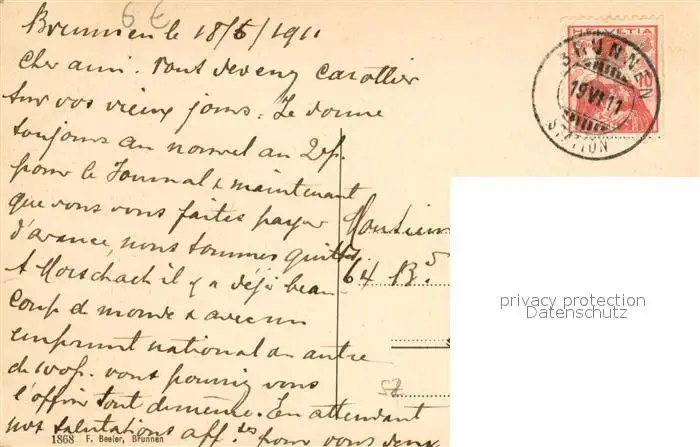 Brunnen le 18/6/1911
cher ami. Vous devenez carottier
sur vos vieux jours. Je donne
toujours au nouvel an 2 fr.
pour le Journal & maintenant
que vous vous faites payer
d'avance, nous sommes quittes
A Morschach il y a déjà beau-
coup de monde & avec un
emprunt national ou autre
de vous pourriez vous
l'offrir tout de même. En attendant
nos salutations aff.tes pour vous deux
1868 F. Beeler, Brunnen
HELVETIA
10
BRUNNEN
19 VI 11
STATION
Monsieur
64 Bd
privacy protection
Datenschutz